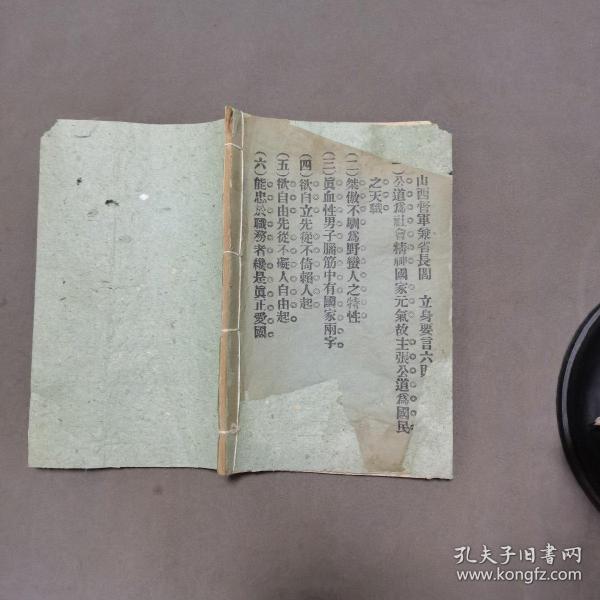 山西督軍兼省長閻　立身要言六則
(一)公道爲社會精神國家元氣故主張公道爲國民
之天職
(二)桀傲不馴爲野蠻人之特性
(三)眞血性男子腦筋中有國家兩字
(四)欲自立先從不倚賴人起
(五)欲自由先從不礙人自由起
(六)能忠於職務者纔是眞正愛國
孔夫子旧书网
www.kongfz.com